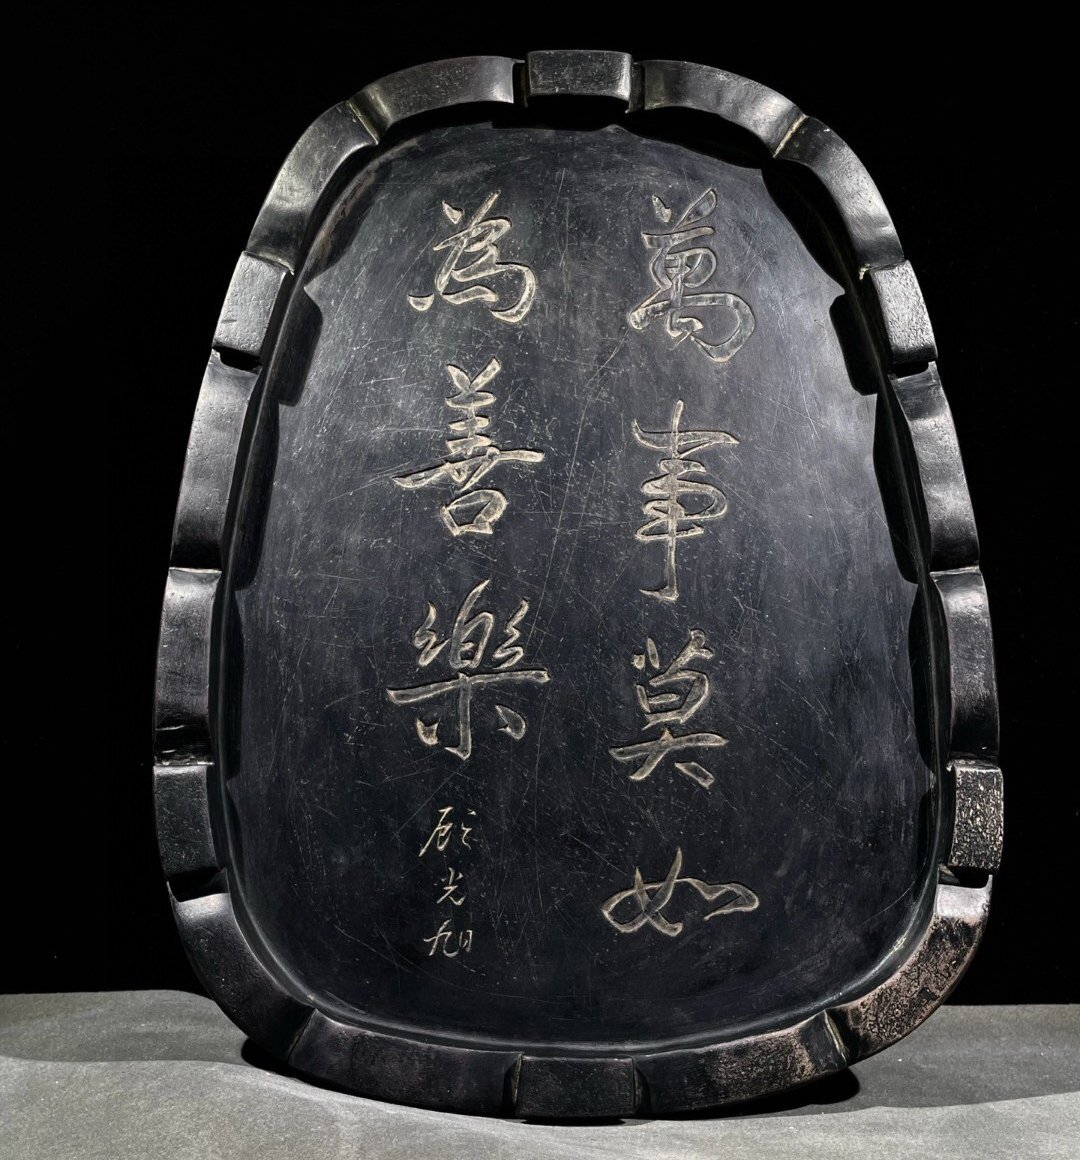 萬事莫如
為善樂
顧光旭